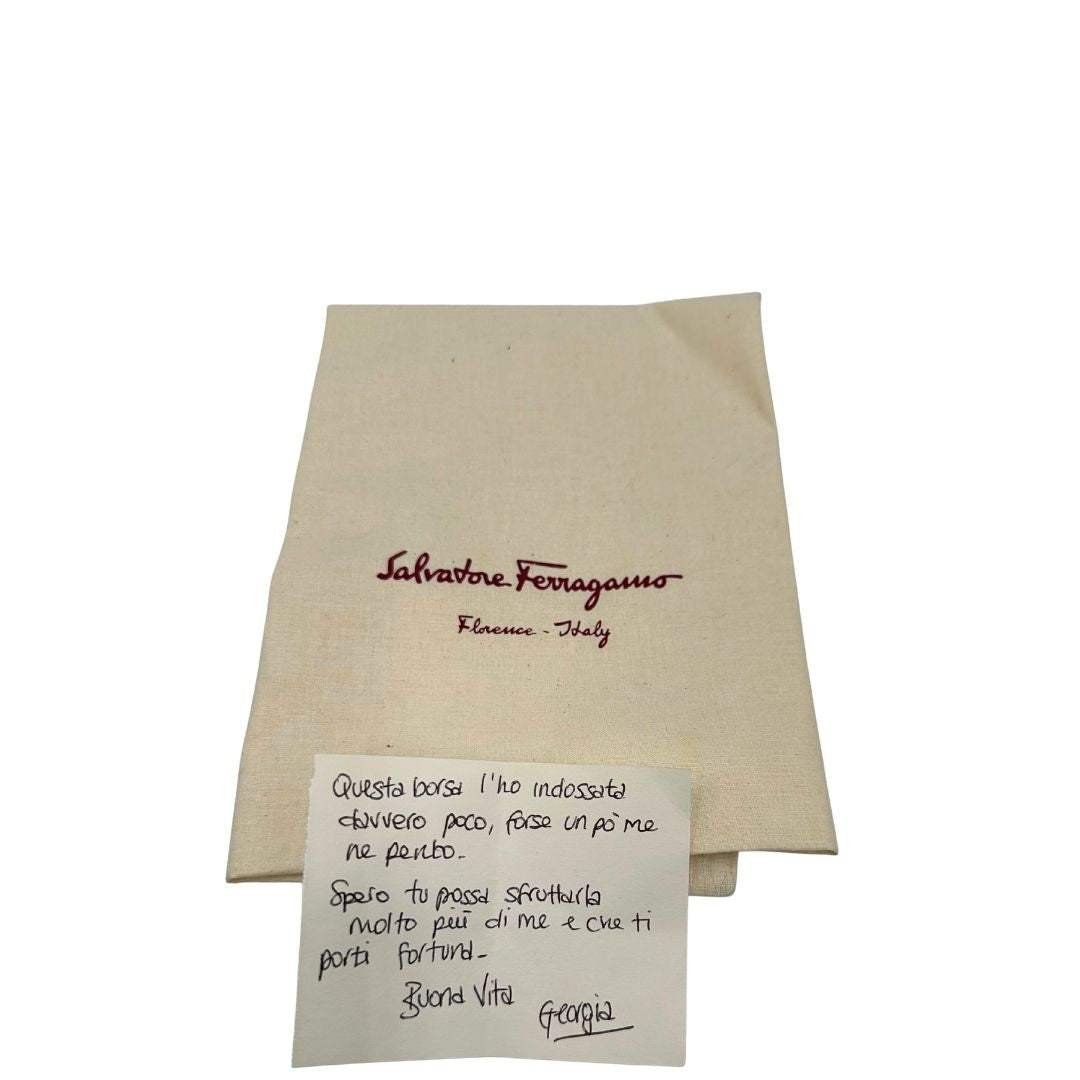 Salvatore Ferragamo
Florence - Italy
Questa borsa l'ho indossata
davvero poco, forse un pò me
ne pento-
Spero tu possa sfruttarla
molto più di me e che ti
porti fortuna-
Buona Vita
Georgia